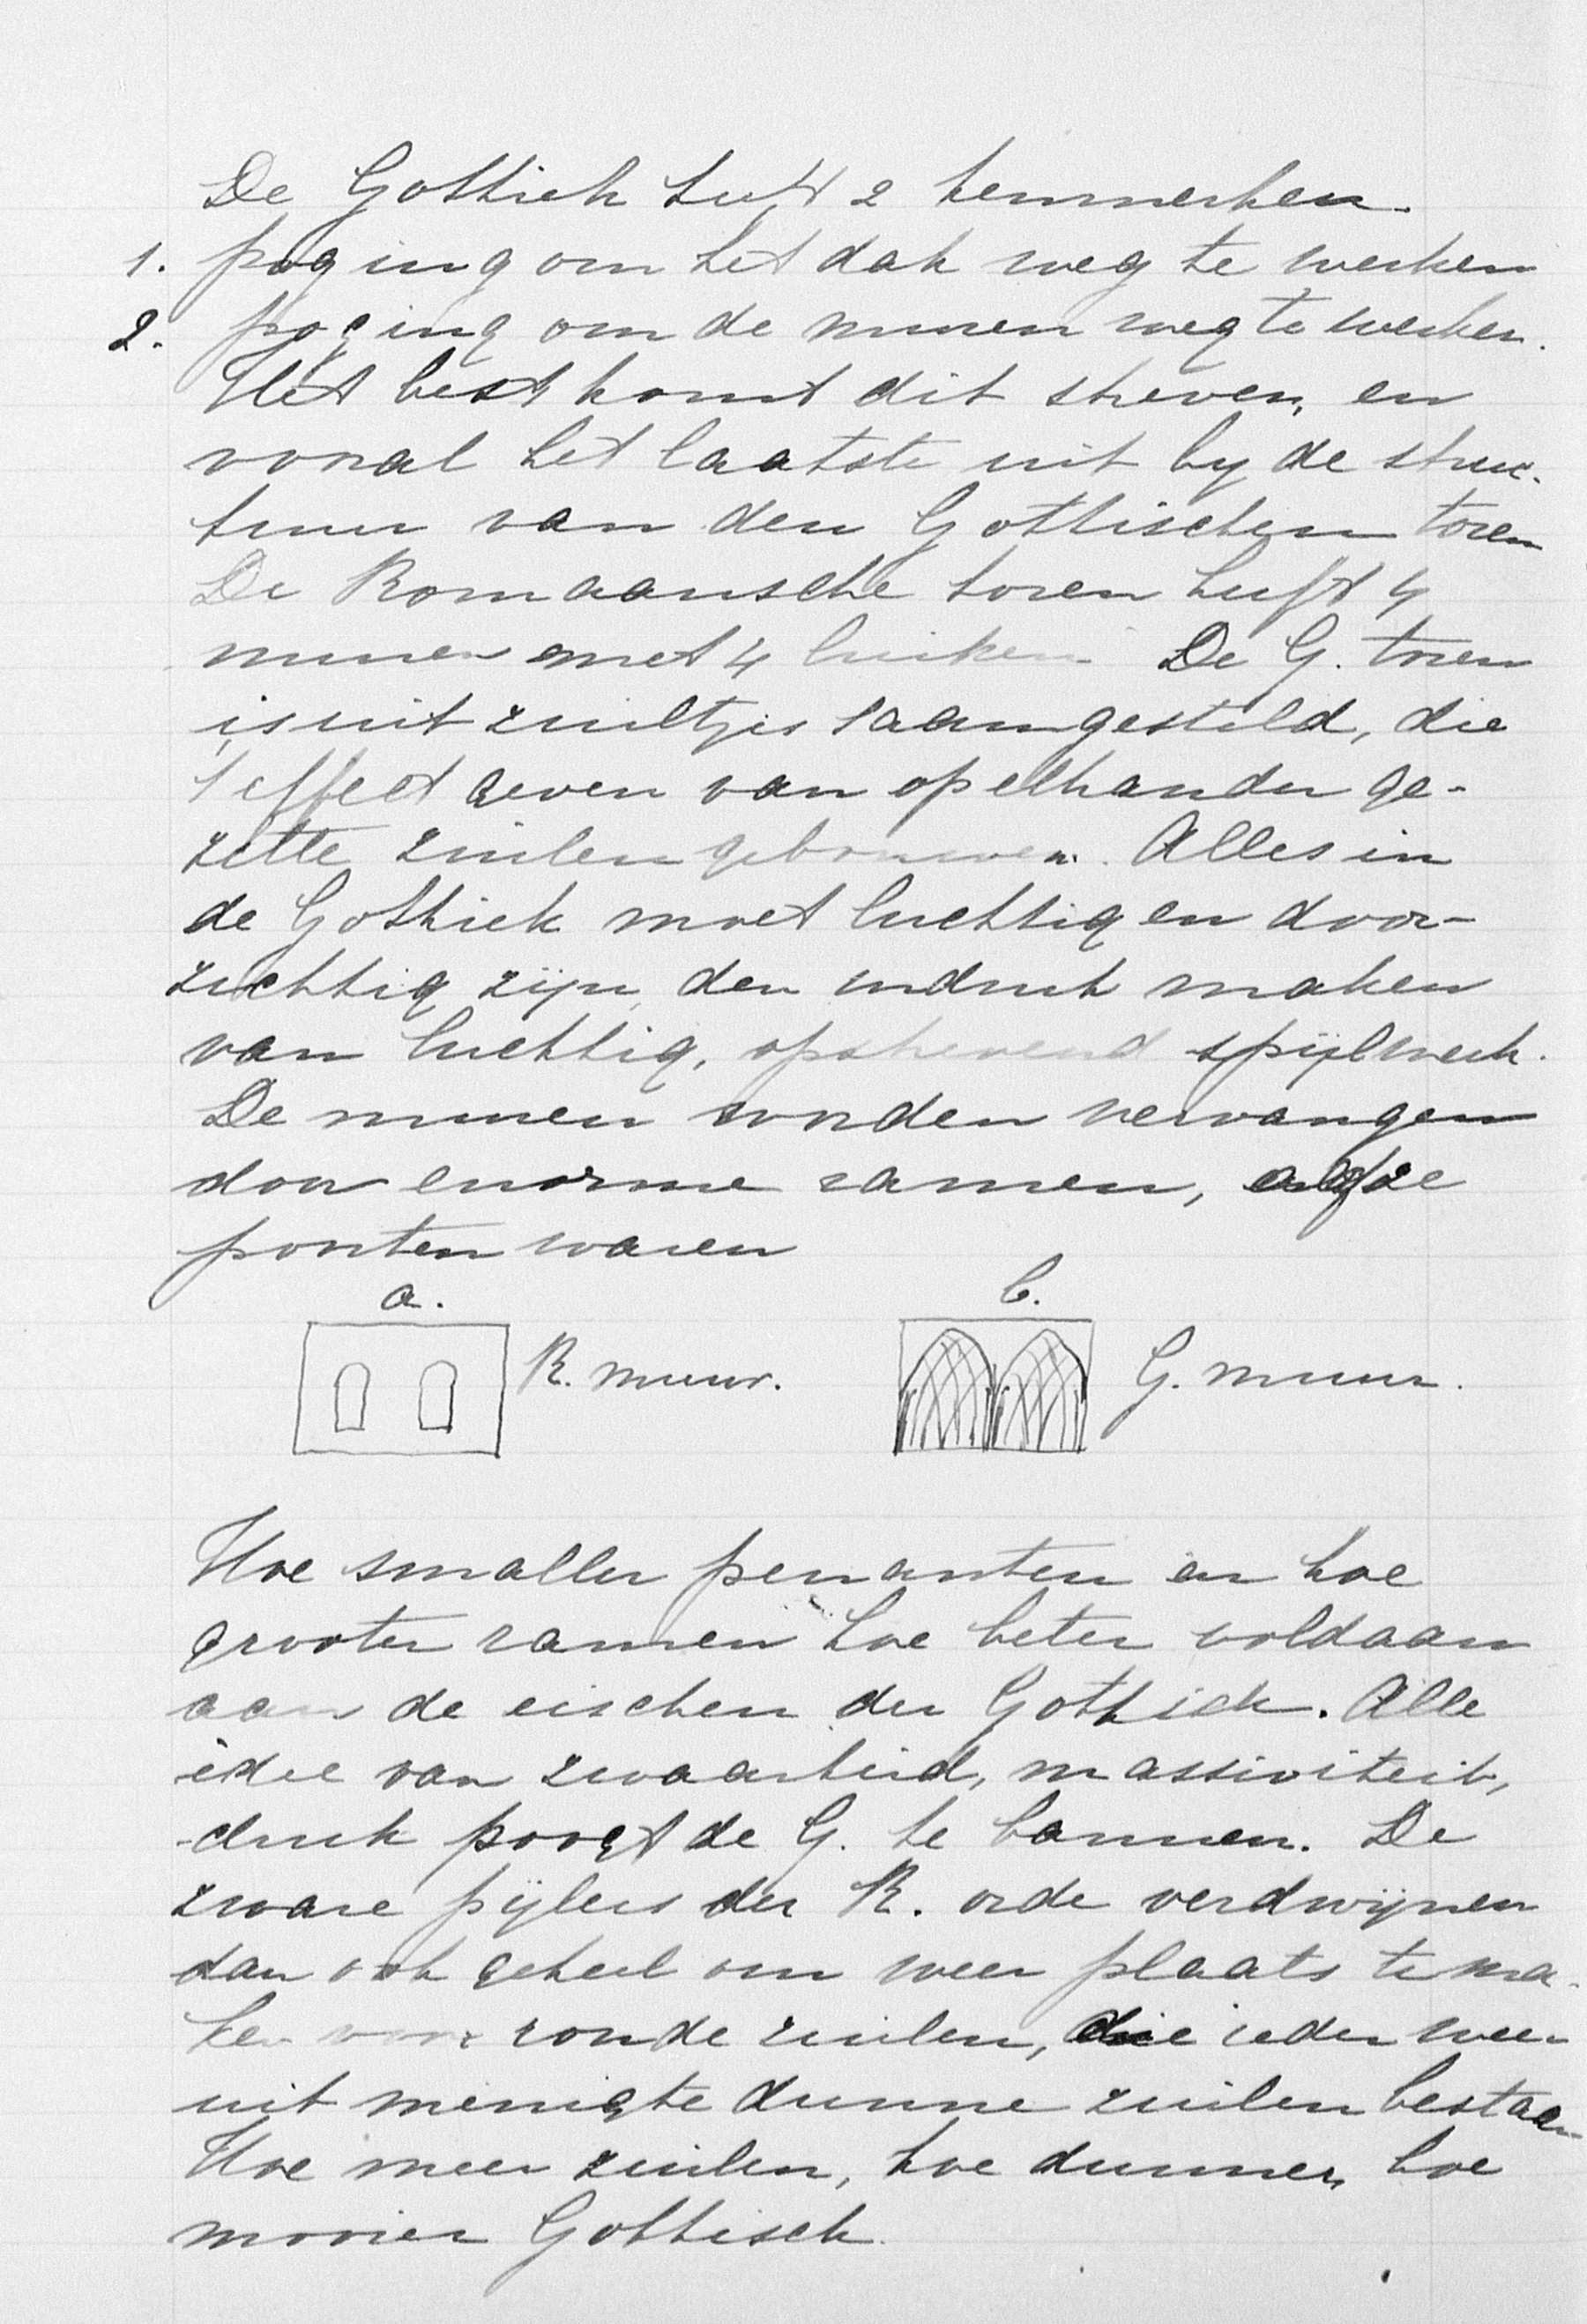 De Gothiek heeft 2 kenmerken.
1. poging om het dak weg te werken
2. poging om de muren weg te werken.
Het best komt dit streven, en
vooral het laatste uit by de struc-
tuur van den Gothischen toren
De Romaansche toren heeft 4
muren met 4 luiken. De G. toren
is uit zuiltjes saamgesteld, die
't effect geven van op elkander ge-
zette zuilengebouwen. Alles in
de Gothiek moet luchtig en door-
zichtig zijn, den indruk maken
van luchtig, opstrevend spijlwerk.
De muren worden vervangen
door enorme ramen, alsof ze
poorten waren
a. b.
R. muur. G. muur.
Hoe smaller penanten en hoe
grooter ramen hoe beter voldaan
aan de eischen der Gothiek. Alle
idee van zwaarheid, massiviteit,
druk poogt de G. te bannen. De
zware pijlers der R. orde verdwijnen
dan ook geheel om weer plaats te ma-
ken voor ronde zuilen, die ieder weer
uit menigte dunne zuilen bestaan
Hoe meer zuilen, hoe dunner, hoe
mooier Gothisch.